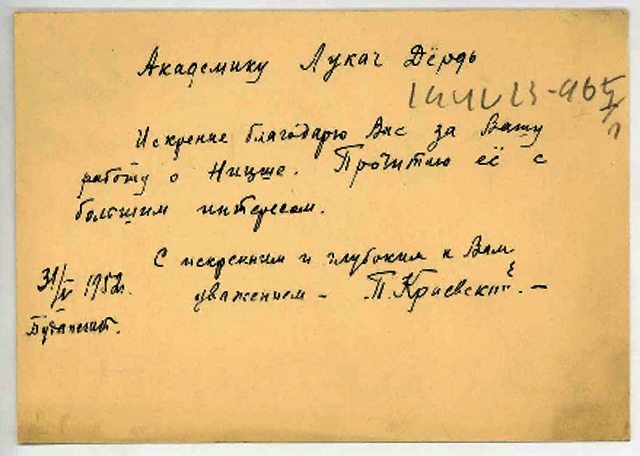 Академику Лукач Дёрдь
Искренне благодарю Вас за Вашу
работу о Ницше. Прочитаю её с
большим интересом.
С искренним и глубоким к Вам
31/V 1952г. уважением – П. Краевский. –
Будапешт.